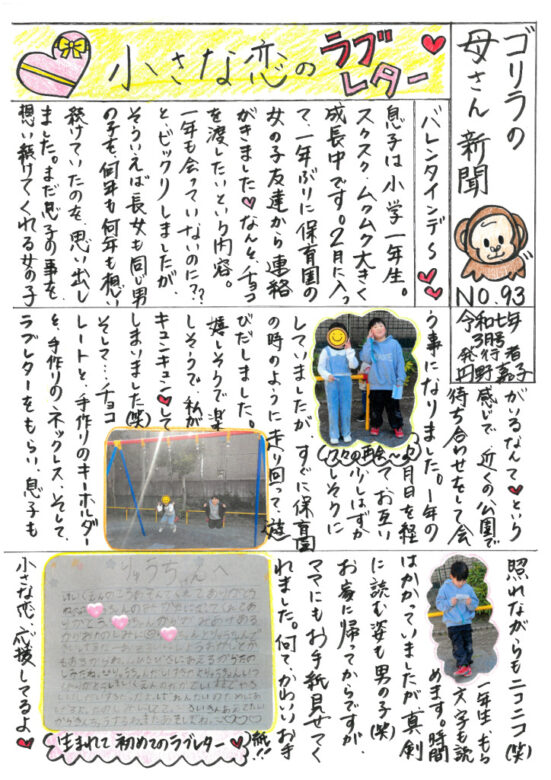 ゴリラの
母さん新聞
NO.93
令和七年
3月号
発行者
円野嘉子
小さな恋の
ラブ
レター
バレンタインデ〜
息子は小学一年生。
スクスク、ムクムク大きく
成長中です。2月に入っ
て、一年ぶりに保育園の
女の子友達から連絡
がきました なんと、チョコ
を渡したいという内容。
一年も会っていないのに??
と、ビックリしましたが、
そういえば長女も同じ男
の子を、何年も何年も想い
続けていたのを、思い出し
ました。まだ息子の事を、
想い続けてくれる女の子
がいるなんて という
感じで、近くの公園で
待ち合わせをして会
う事になりました。一年の
月日を経
てお互い
少しはずか
しそうに
していましたが、すぐに保育園
の時のように走り回って、遊
びだしました。
嬉しそうで楽
しそうで。私が
キュンキュン して
しまいました(笑)
そして…チョコ
レートと、手作りのキーホルダー
と、手作りのネックレス、そして、
ラブレターをもらい、息子も
照れながらもニコニコ(笑)
一年生、もう
文字も読
めます。時間
はかかっていましたが、真剣
に読む姿も男の子(笑)
お家に帰ってからですが、
ママにもお手紙見せてく
れました。何て、かわいいお手
紙!!
りゅうちゃんへ
生まれて初めてのラブレター
小さな恋、応援してるよ